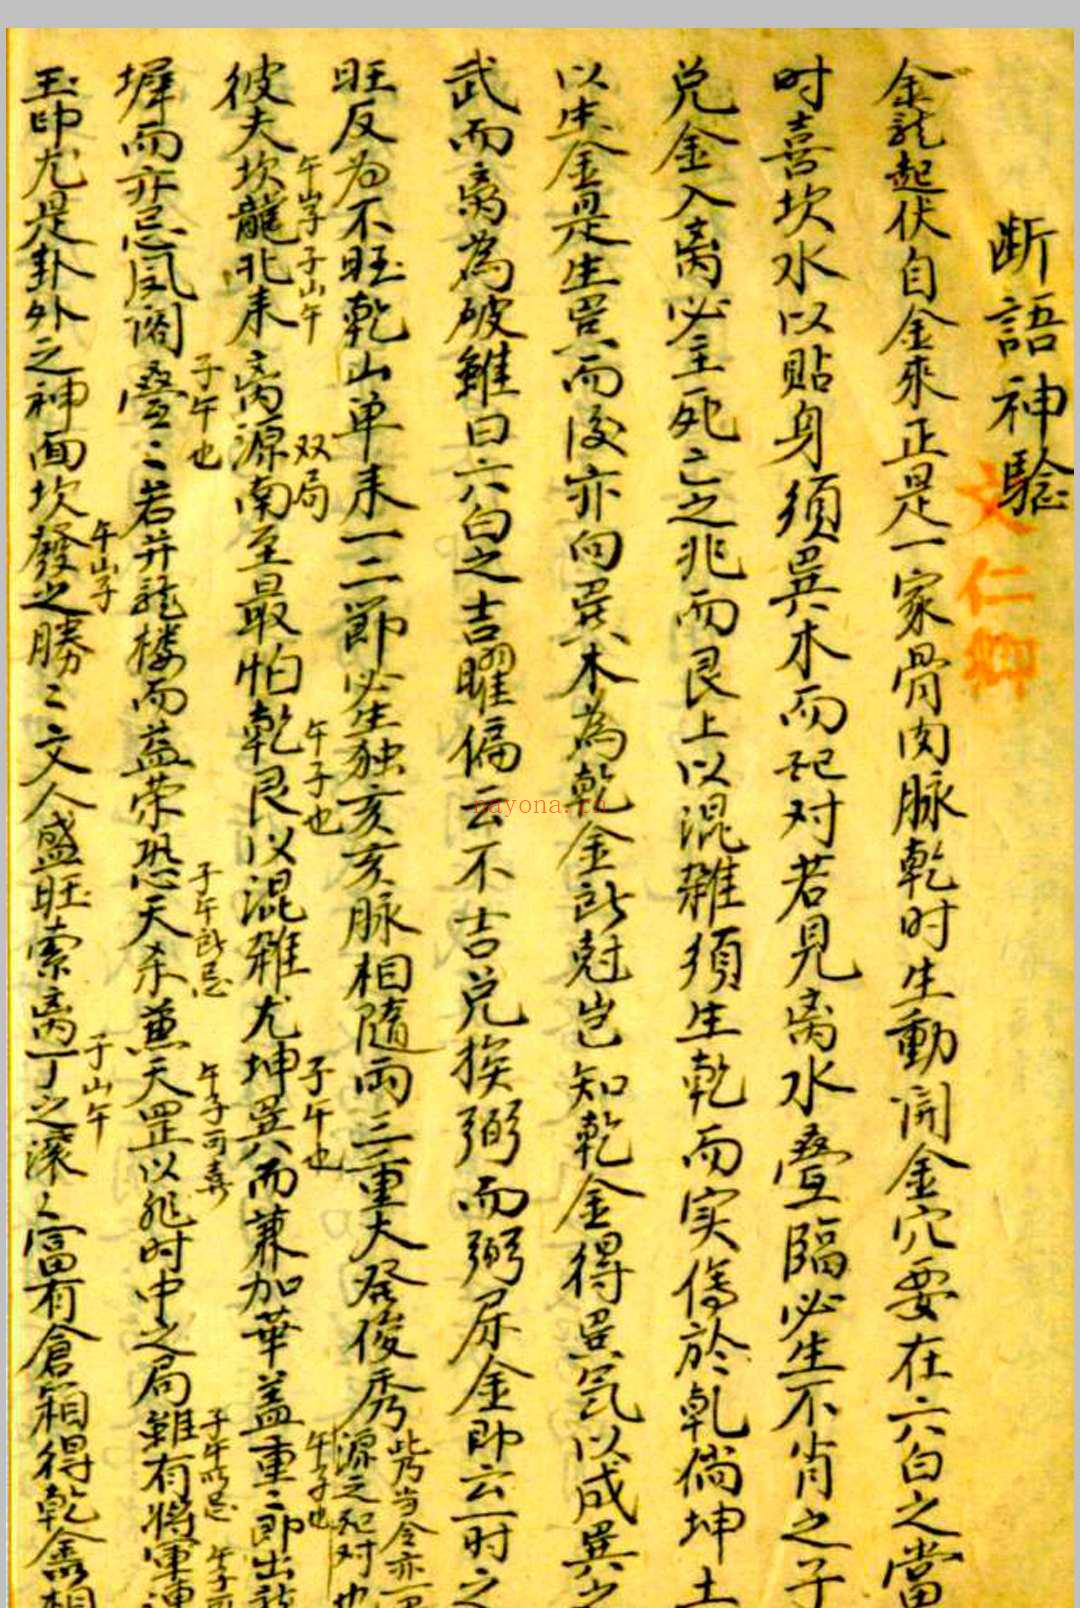 断語神驗
文仁卿
金龍起伏自金來正是一家骨肉脉乾时生動開金穴要在六白之當
时喜坎水以貼身須巽木而配对若見离水叠臨必生不肖之子
兑金入离必主死亡之兆而艮上以混雜須生乾而实傷於乾倘坤土
以生金是生巽而後亦向巽木為乾金所尅豈知乾金得巽氣以成巽之
武而离為破雖曰六白之吉曜偏云不吉兑挨弼而弼屎金即云一时之
旺反为不旺乾山单来一二節必生独亥亥脉相隨兩三重大發俊秀
此当令亦一
源之配对也
午山子子山午
双局
午子也
子午也
午子也
彼夫坎龍北来离源南至最怕乾艮以混雜尤坤巽而兼加華盖重〻即出
子午也
子午所忌
午子可喜
子午所忌
午子可
墀而亦忌凤阁叠〻若并龍楼而益荣恐天杀兼天罡以非时中之局雖有將軍
午山子
子山午
玉印尤是卦外之神面坎發之勝〻文人盛旺索离丁之滚〻富有倉箱得乾金相
nayona.cn